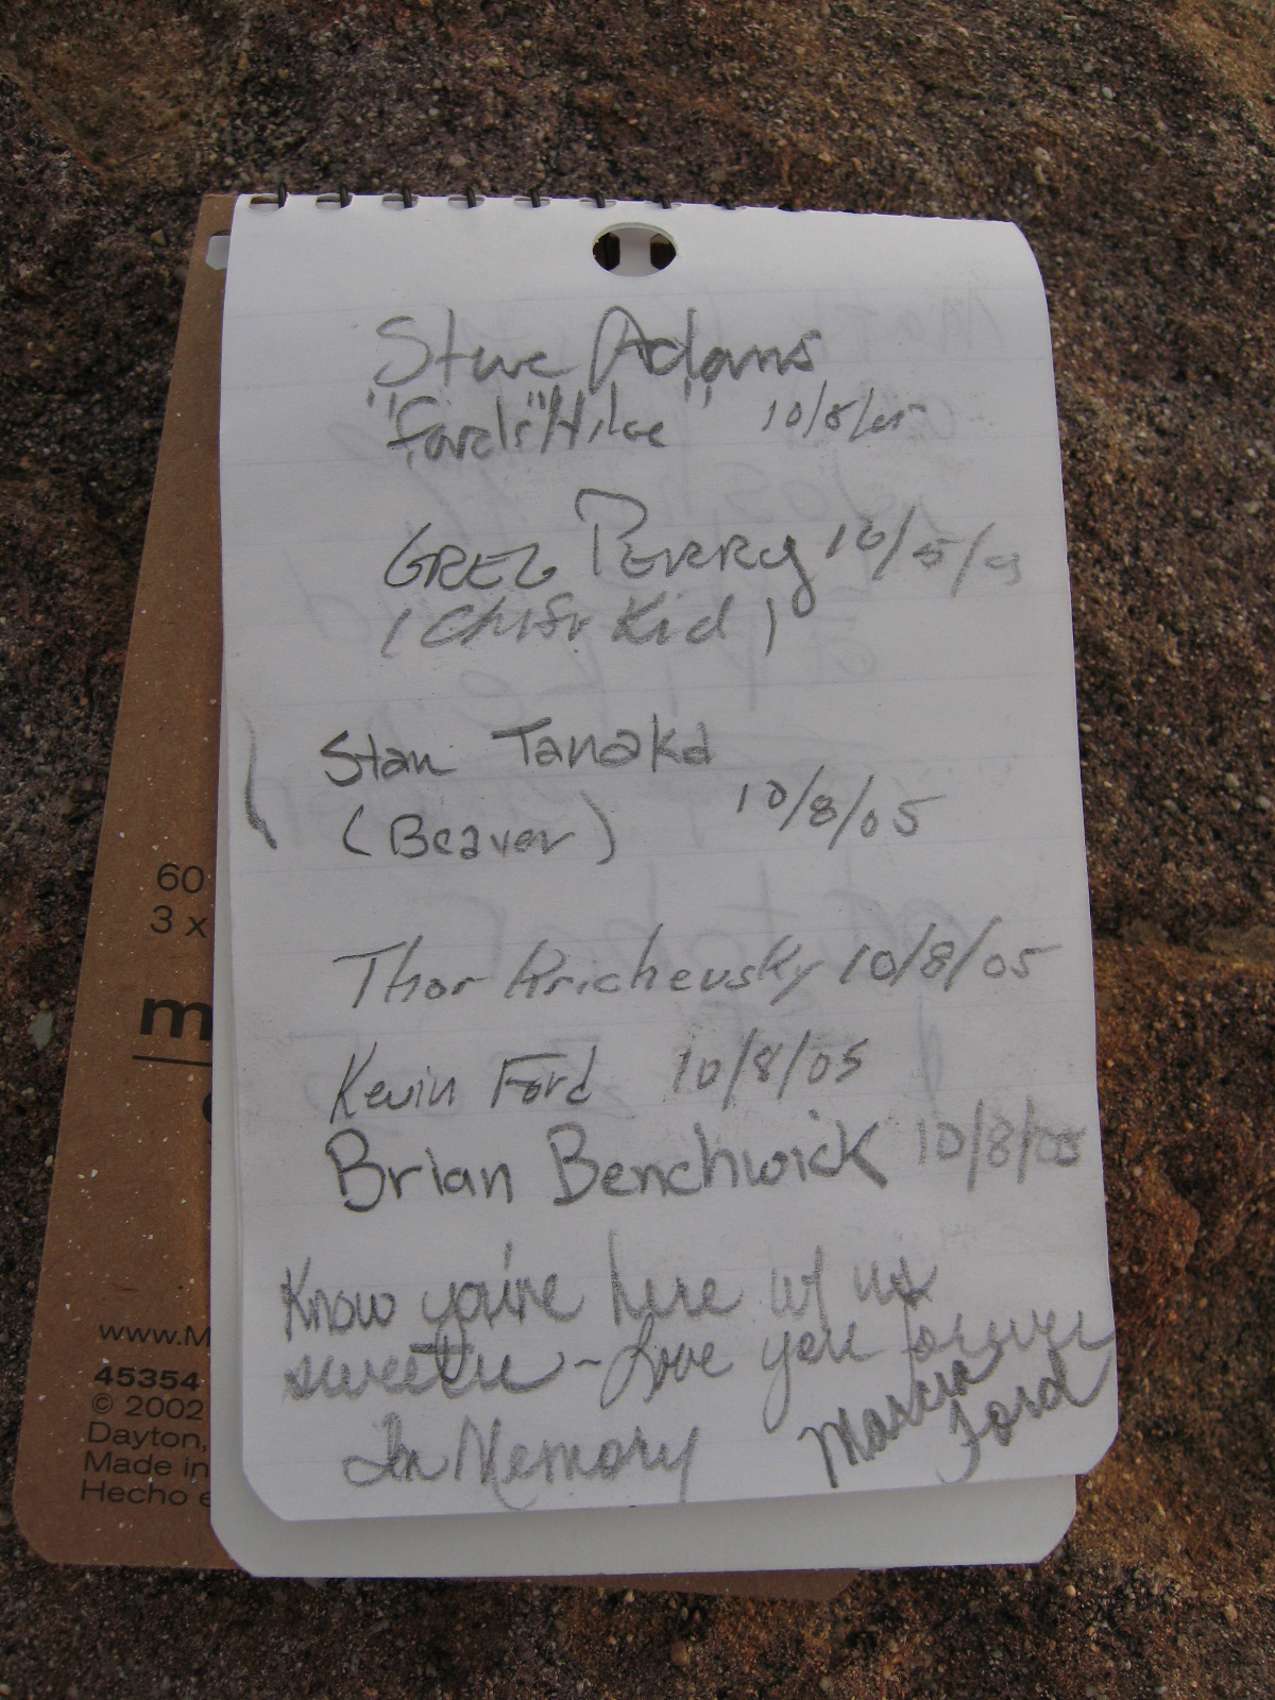 Steve Adams
10/8/05
GREG PERRY 10/8/05
Kid)
Stan Tanaka
(Beaver) 10/8/05
Thor Krichevsky 10/8/05
Kevin Ford 10/8/05
Brian Benchwick 10/8/05
Know you're here w/ us
sweetie ~ Love you forever
In Memory Marcia Ford
60
3 x
m
www.M
45354
© 2002
Dayton,
Made in
Hecho e